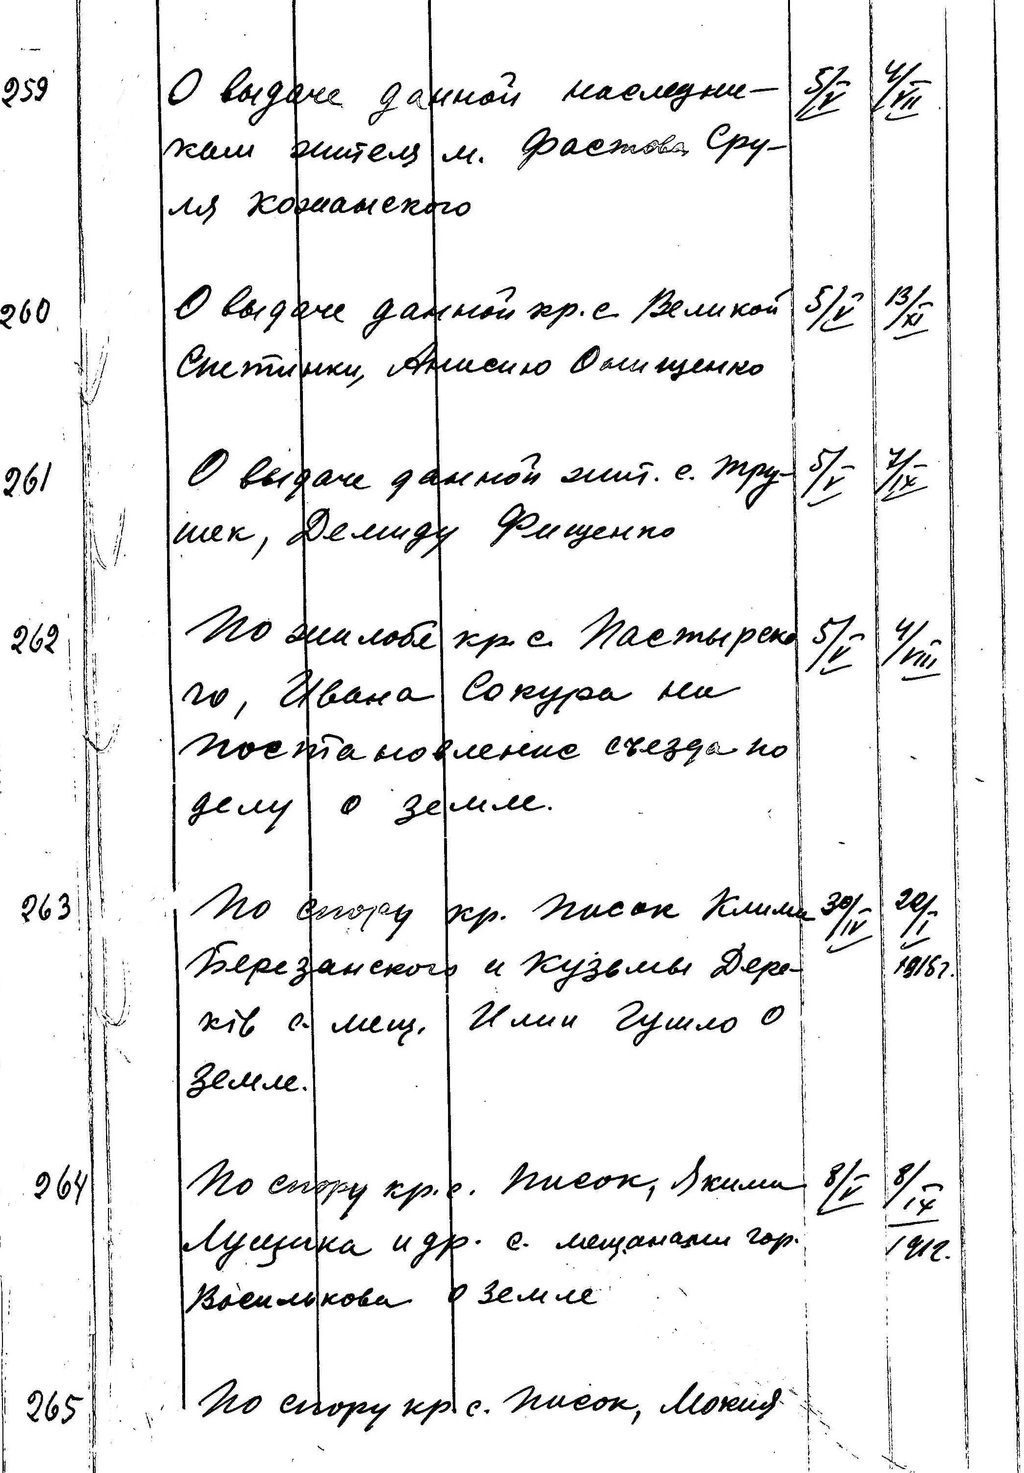 259 О выдаче данной наследни- 5/V 4/VII
кам жителя м. Фастова Сру-
ля Кожанского
260 О выдаче данной кр. с. Великой 5/V 13/XI
Снетинки, Анисию Онищенко
261 О выдаче данной жит. с. Тру- 5/V 7/IX
шек, Демиду Фищенко
262 По жалобе кр. с. Пастырско 5/V 4/VIII
го, Ивана Сокура на
постановление съезда по
делу о земле.
263 По спору кр. Писок Клима 30/IV 20/I
Березанского и Кузьмы Дере- 1915г.
ків с. мещ. Илии Гушло о
земле.
264 По спору кр. с. Писок, Якима 8/V 8/IX
Лущика и др. с. мещанами гор. 191г.
Василькова о земле
265 По спору кр. с. Писок, Мокия